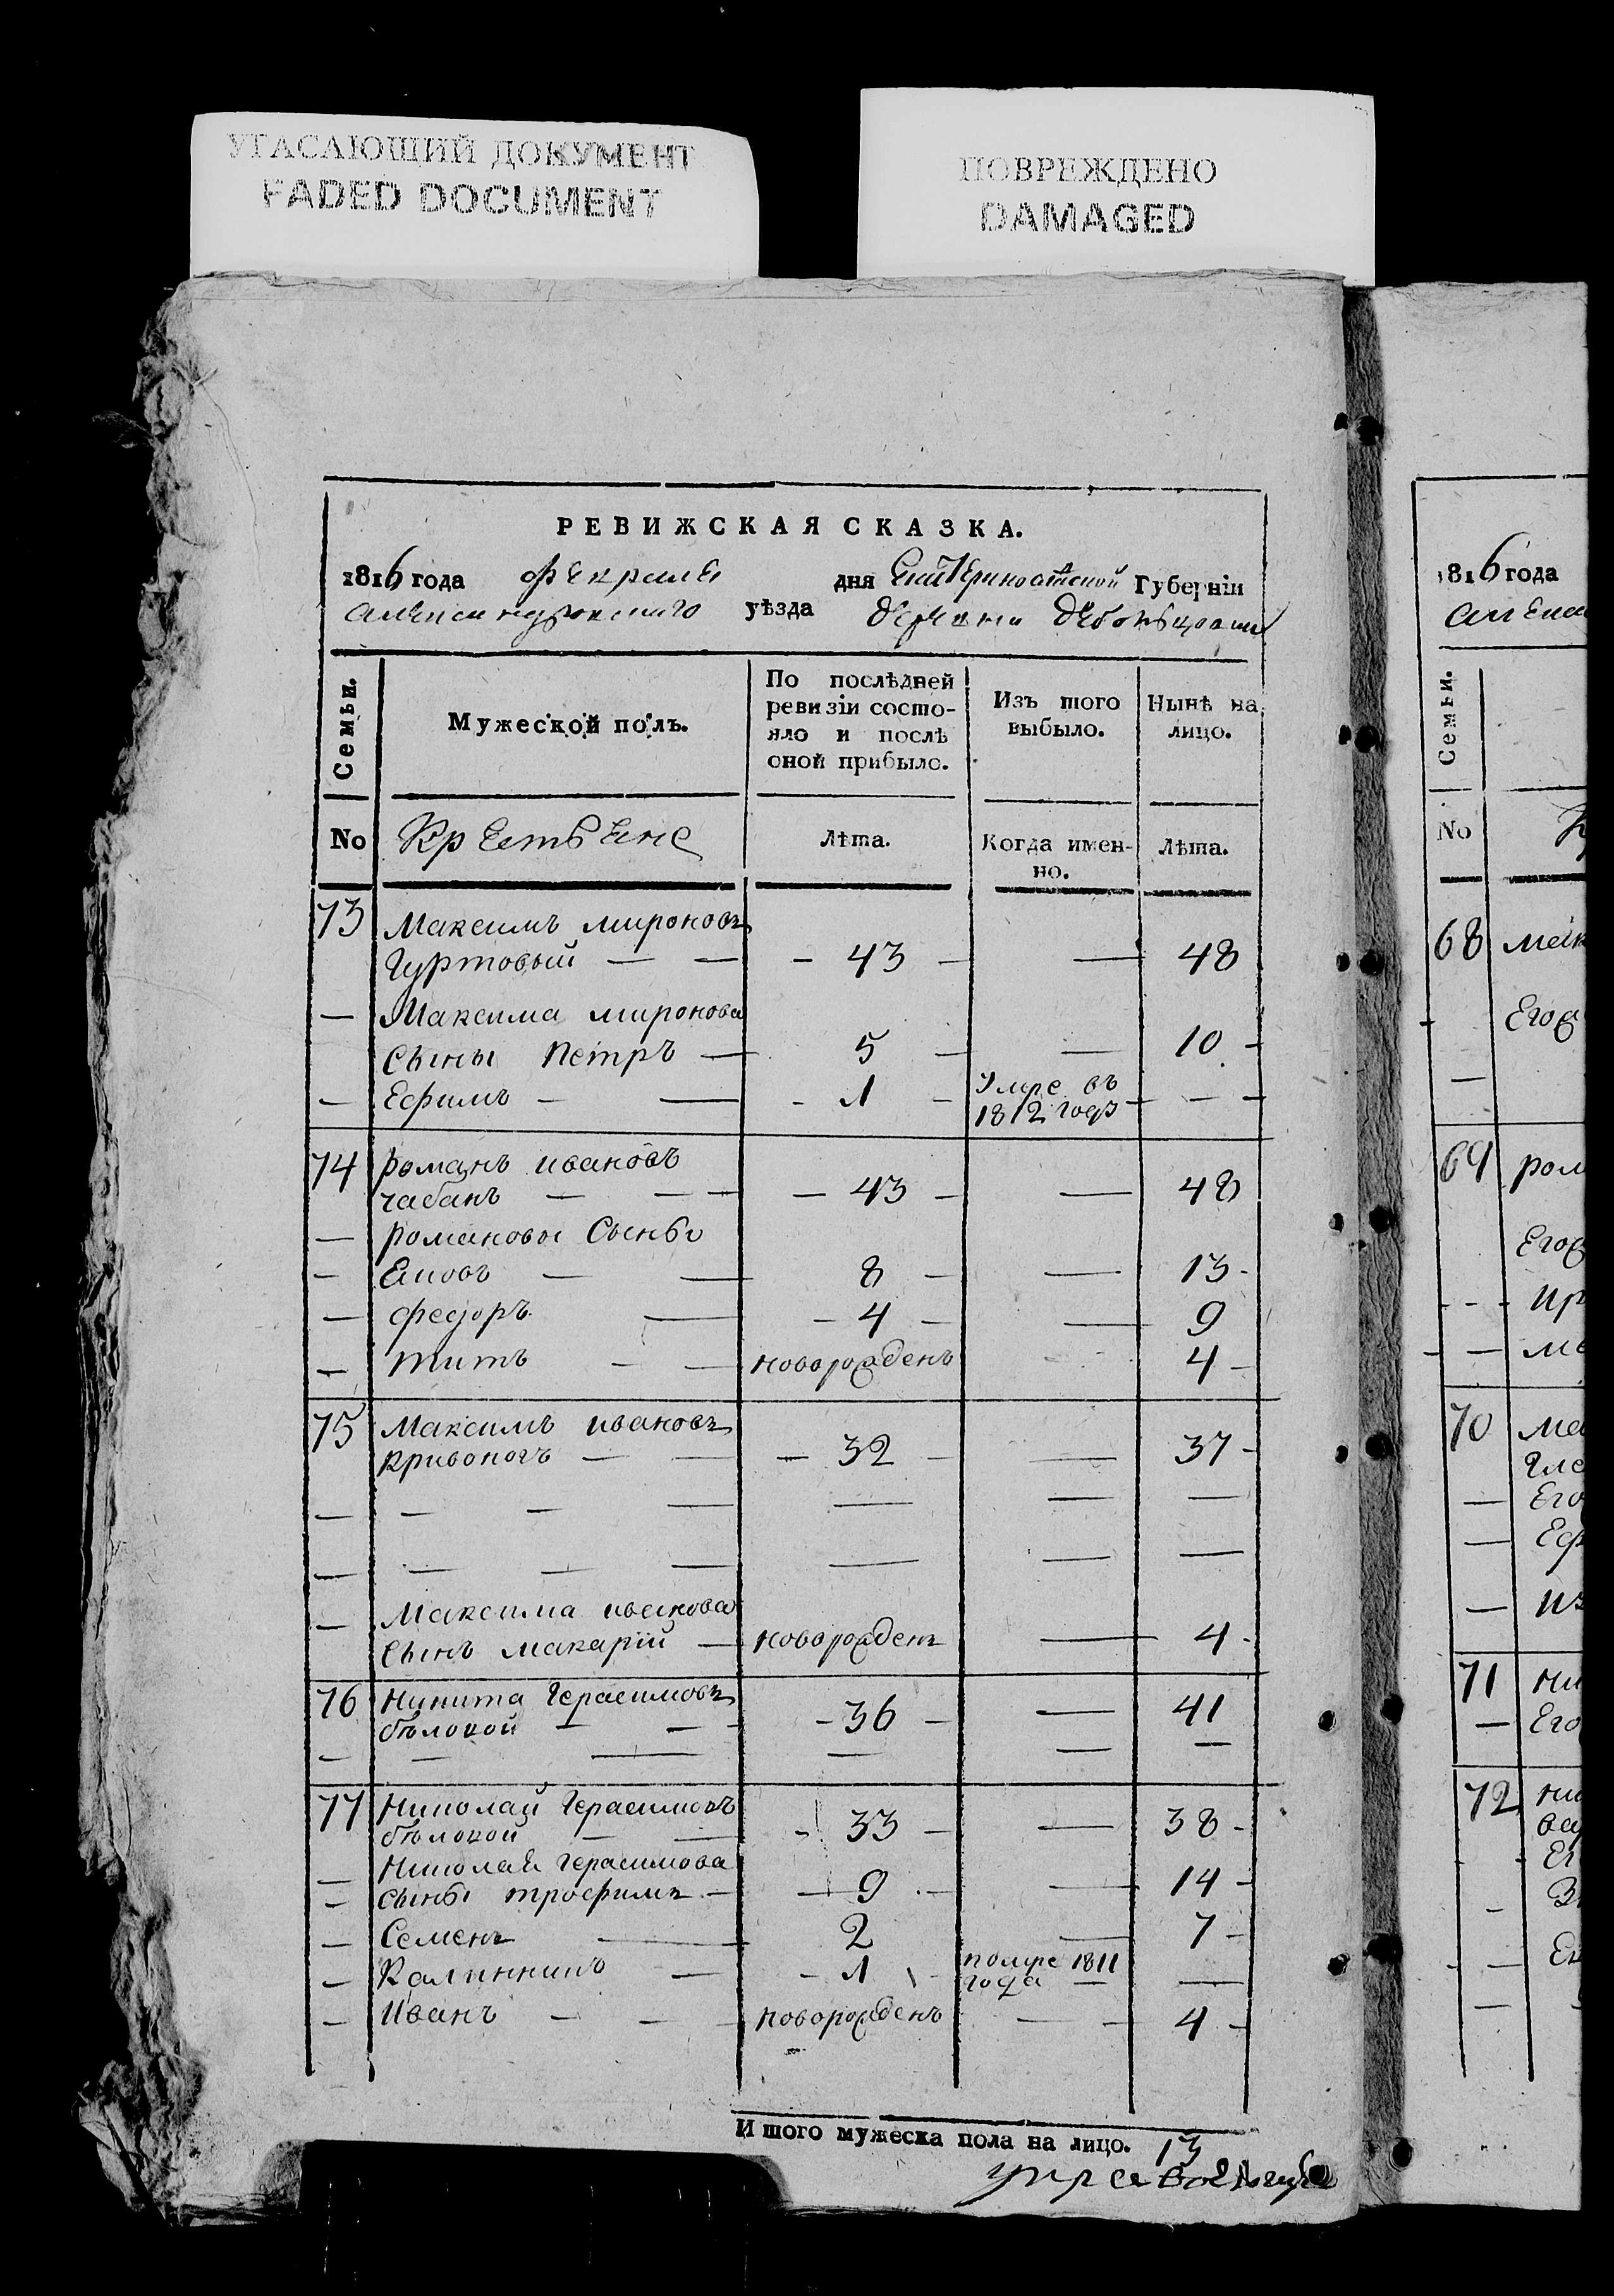 УГАСАЮЩИЙ ДОКУМЕНТ
FADED DOCUMENT
ПОВРЕЖДЕНО
DAMAGED
РЕВИЖСКАЯ СКАЗКА.
1816 года февраля дня Губерніи
уѣзда деревни
Семьи.
Мужеской полъ.
По послѣдней
ревизіи состо-
яло и послѣ
оной прибыло.
Изъ того
выбыло.
Нынѣ на
лицо.
No Крестьяне Лѣта. Когда имен-
но. Лѣта.
73 Максимъ мироновъ
Гуртовый — — - 43 - — 48
— Максима миронова
сыны Петръ — 5 - — 10 -
— Ефимъ - — - 1 - Умре въ
1812 годѣ - — -
74 романъ ивановъ
чабанъ — — - — 43 - — 48
— романовы Сыны
— Яковъ — — 8 - — 13 -
— федоръ — - 4 - — 9
— титъ - — новорожденъ - 4 -
75 Максимъ ивановъ
кривоногъ — — — 32 - — 37 -
— — — — — — —
— — — — — — —
— Максима иванова
сынъ макарій — новорожденъ — 4 -
76 Никита Герасимовъ
бѣлокой — — - 36 - — 41
— — — — — —
77 Николай Герасимовъ
бѣлокой — — - 33 - — 38 -
— Николая герасимова
— сыны трофимъ - — 9 - — 14 -
— Семенъ — 2 — 7 -
— Калинникъ — - 1 - помре 1811
года — —
— Иванъ - — новорожденъ — - 4 -
Итого мужеска пола на лицо. 13
1816 года
Семьи.
No
68
Его
69 ром
Его
70
Его
Еф
из
71
— Его
72